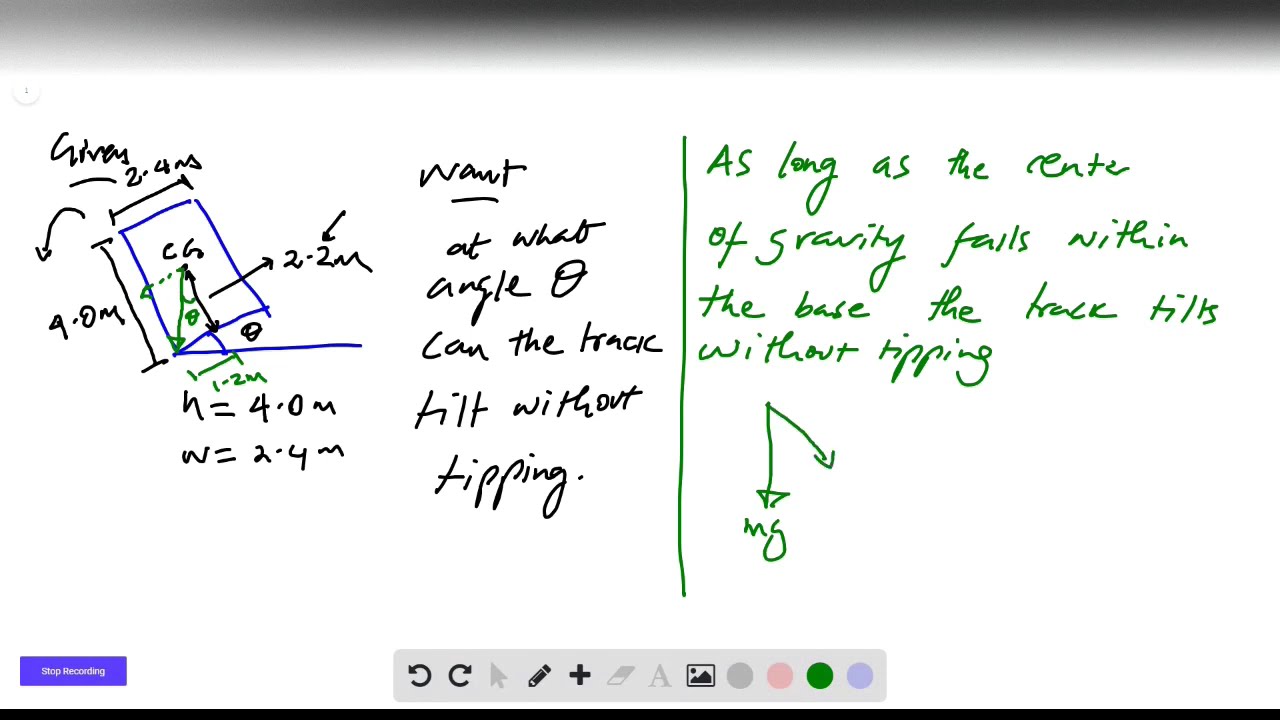 1
Given
2.4m
CG
2.2m
4.0m
θ
θ
1.2m
h = 4.0m
w = 2.4m
want
at what
angle θ
can the track
tilt without
tipping.
As long as the center
of gravity falls within
the base the track tilts
without tipping
mg
Stop Recording
A